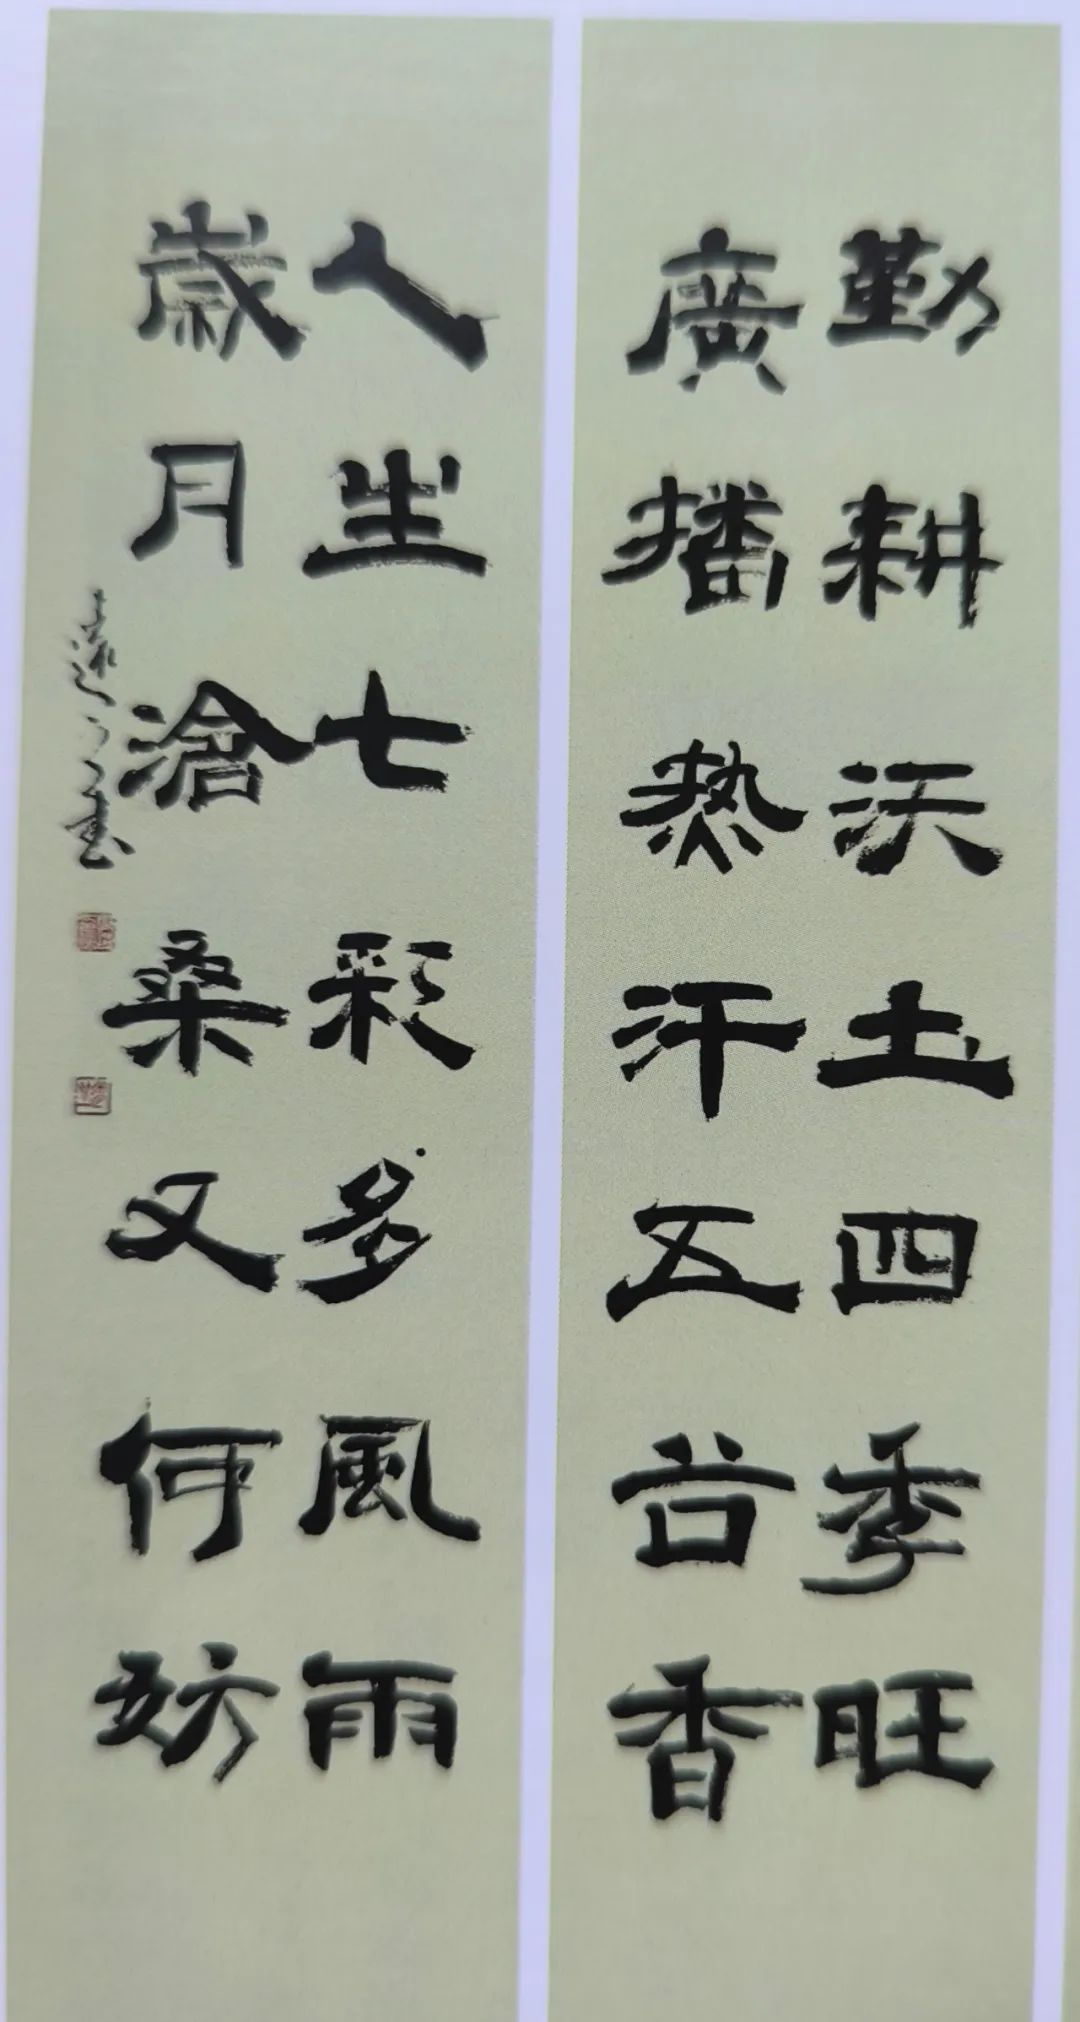 勤耕沃土四季旺
廣播热汗五谷香
人生七彩多風雨
歲月滄桑又何妨